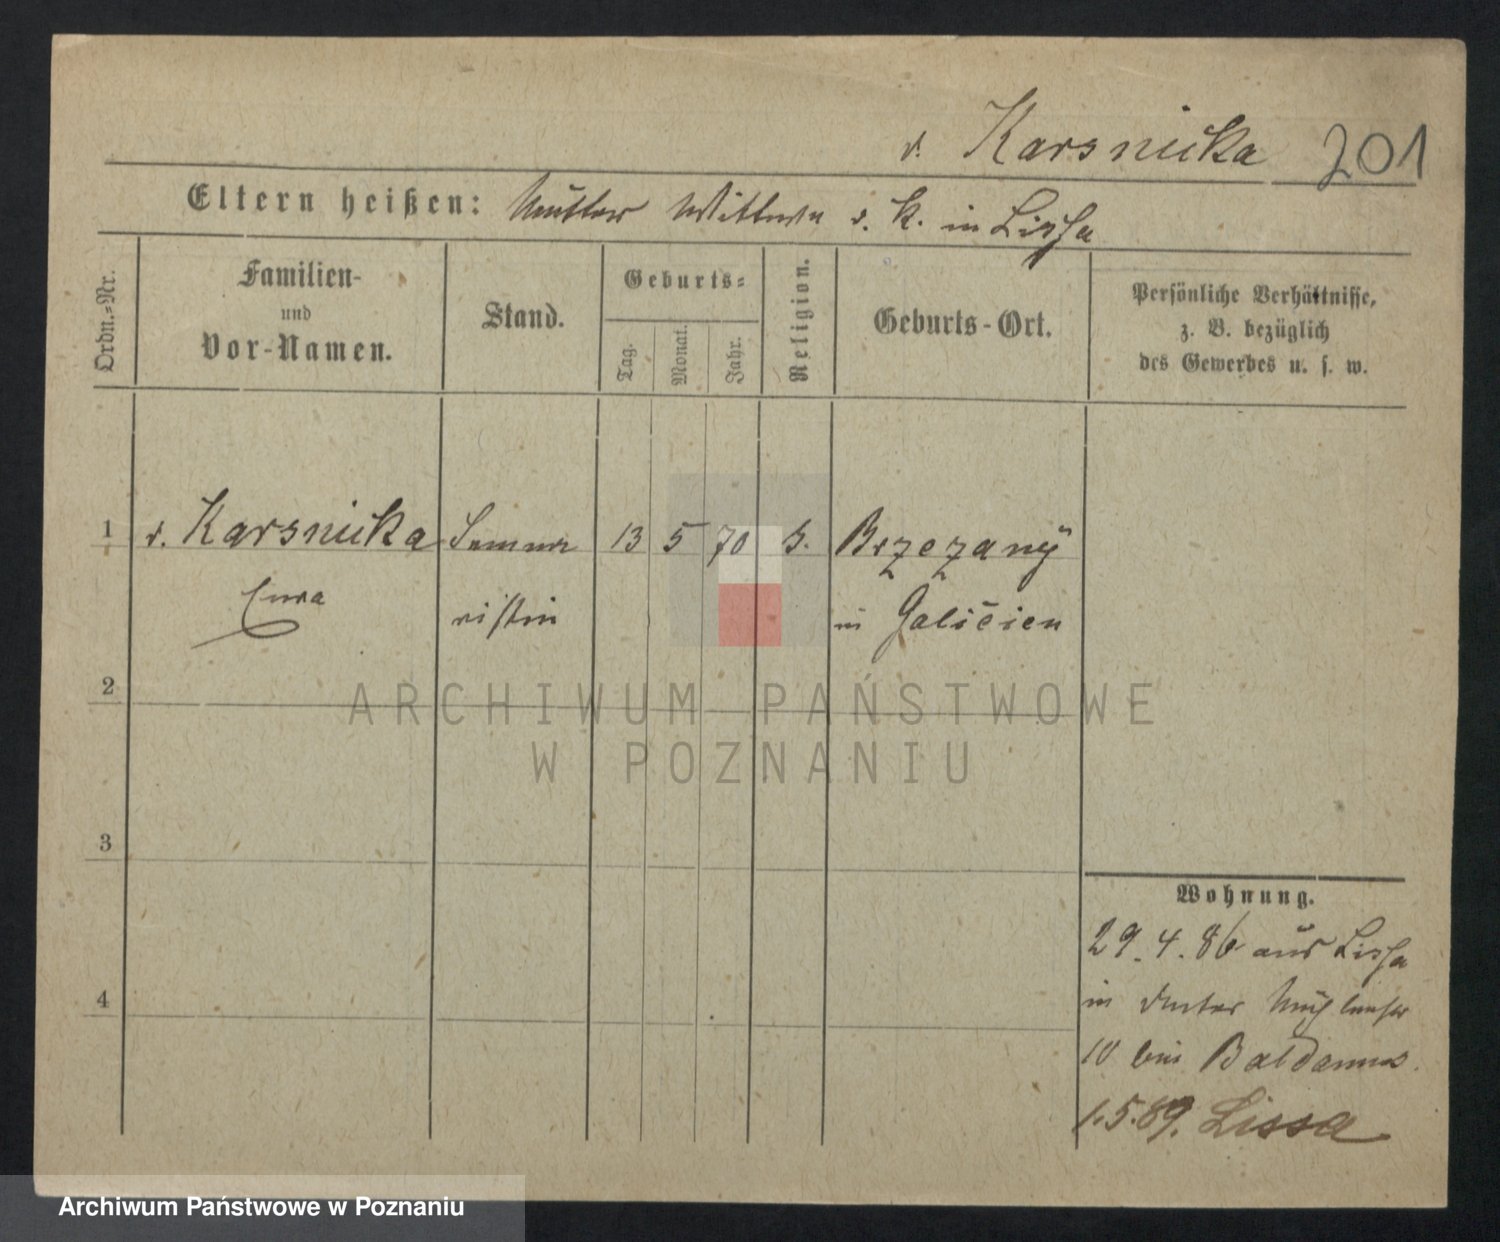 v. Karsnicka 201
Eltern heißen: Mutter Wittwe v. K. in Lissa
Ordn.-Nr.
Familien-
und
Vor-Namen.
Stand.
Geburts-
Tag.
Monat.
Jahr.
Religion.
Geburts-Ort.
Persönliche Verhältnisse,
z. B. bezüglich
des Gewerbes u. s. w.
1 v. Karsnicka Semina 13 5 70 Brzezany
ristin in Galicien
2
ARCHIWUM PAŃSTWOWE
W POZNANIU
3
4
Wohnung.
29. 4. 86 aus Lissa
in
10 bei
1.5.89. Lissa
Archiwum Państwowe w Poznaniu